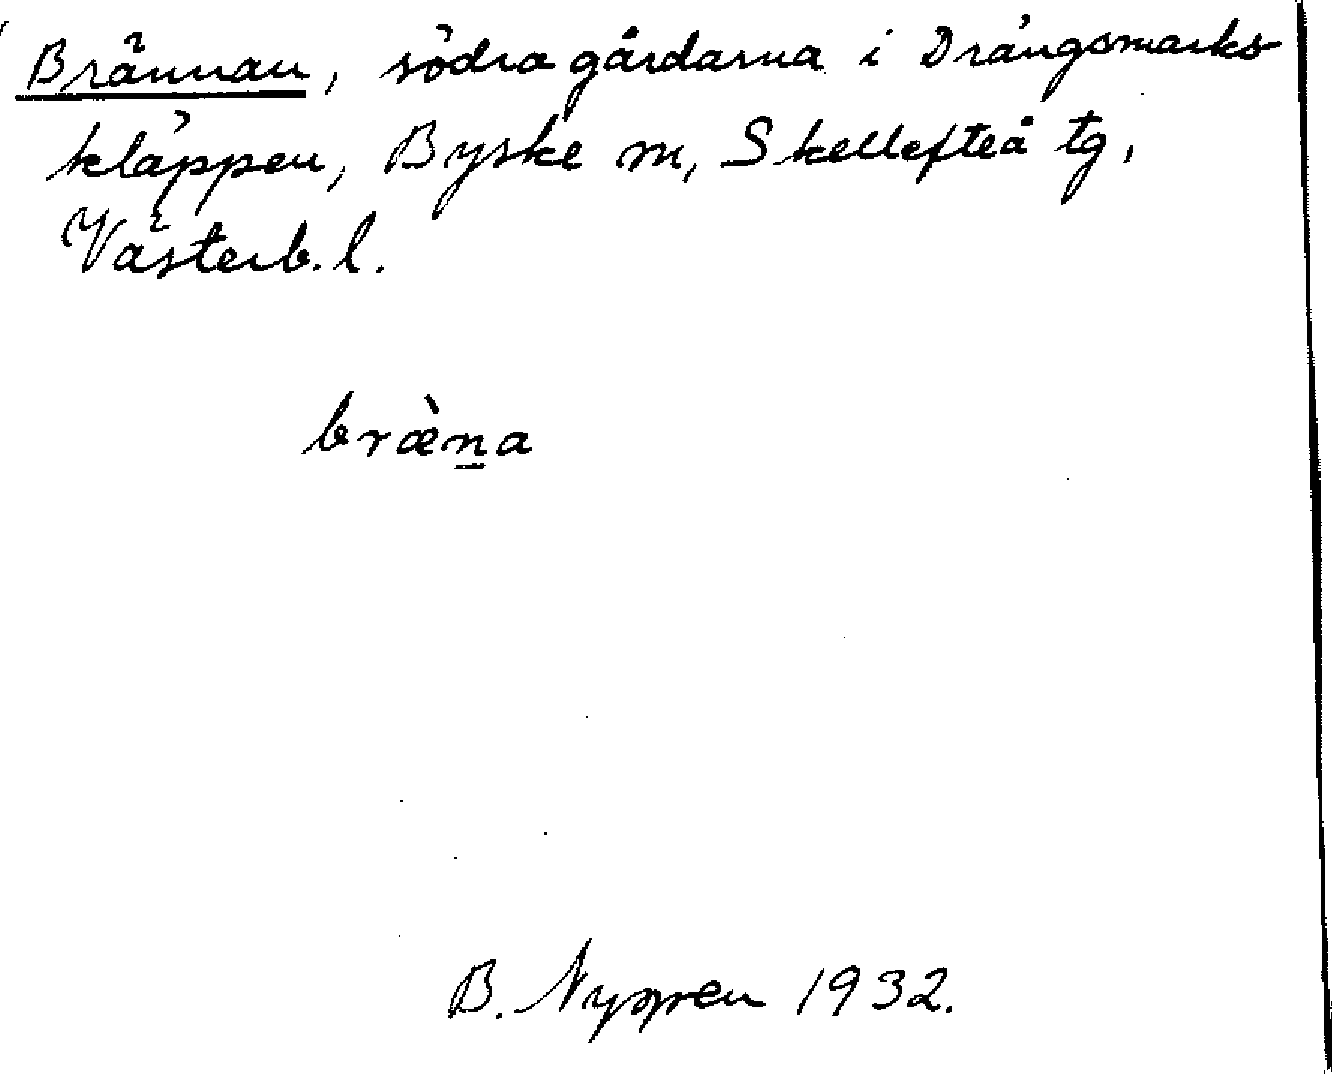 Brännan, södra gårdarna i Drängsmarks-
kläppen, Byske m, Skellefteå tg,
Västerb. l.
bræ̀n̲a
B. Nyppen 1932.